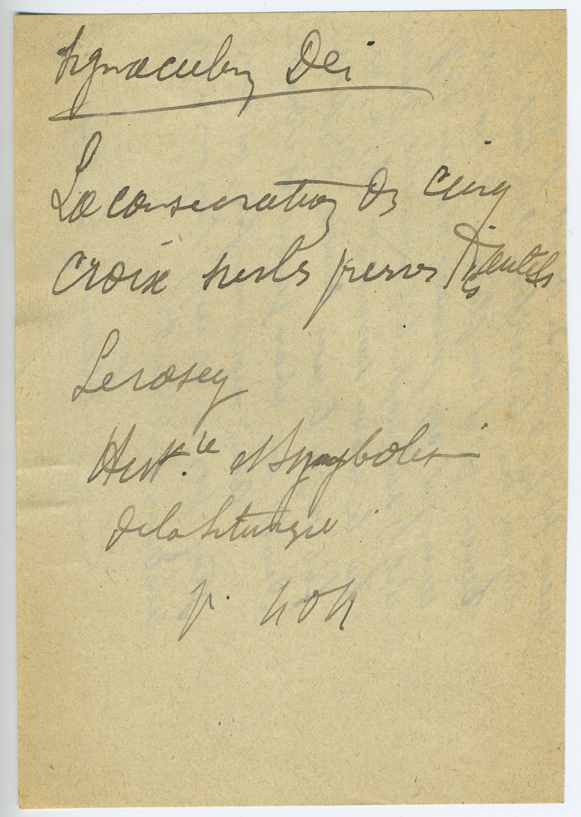 Signaculum Dei
La consecration des cinq
croix sur les pierres d'autels
Lerosey
Hist.re et Symbolis
de la liturgie
p. 404